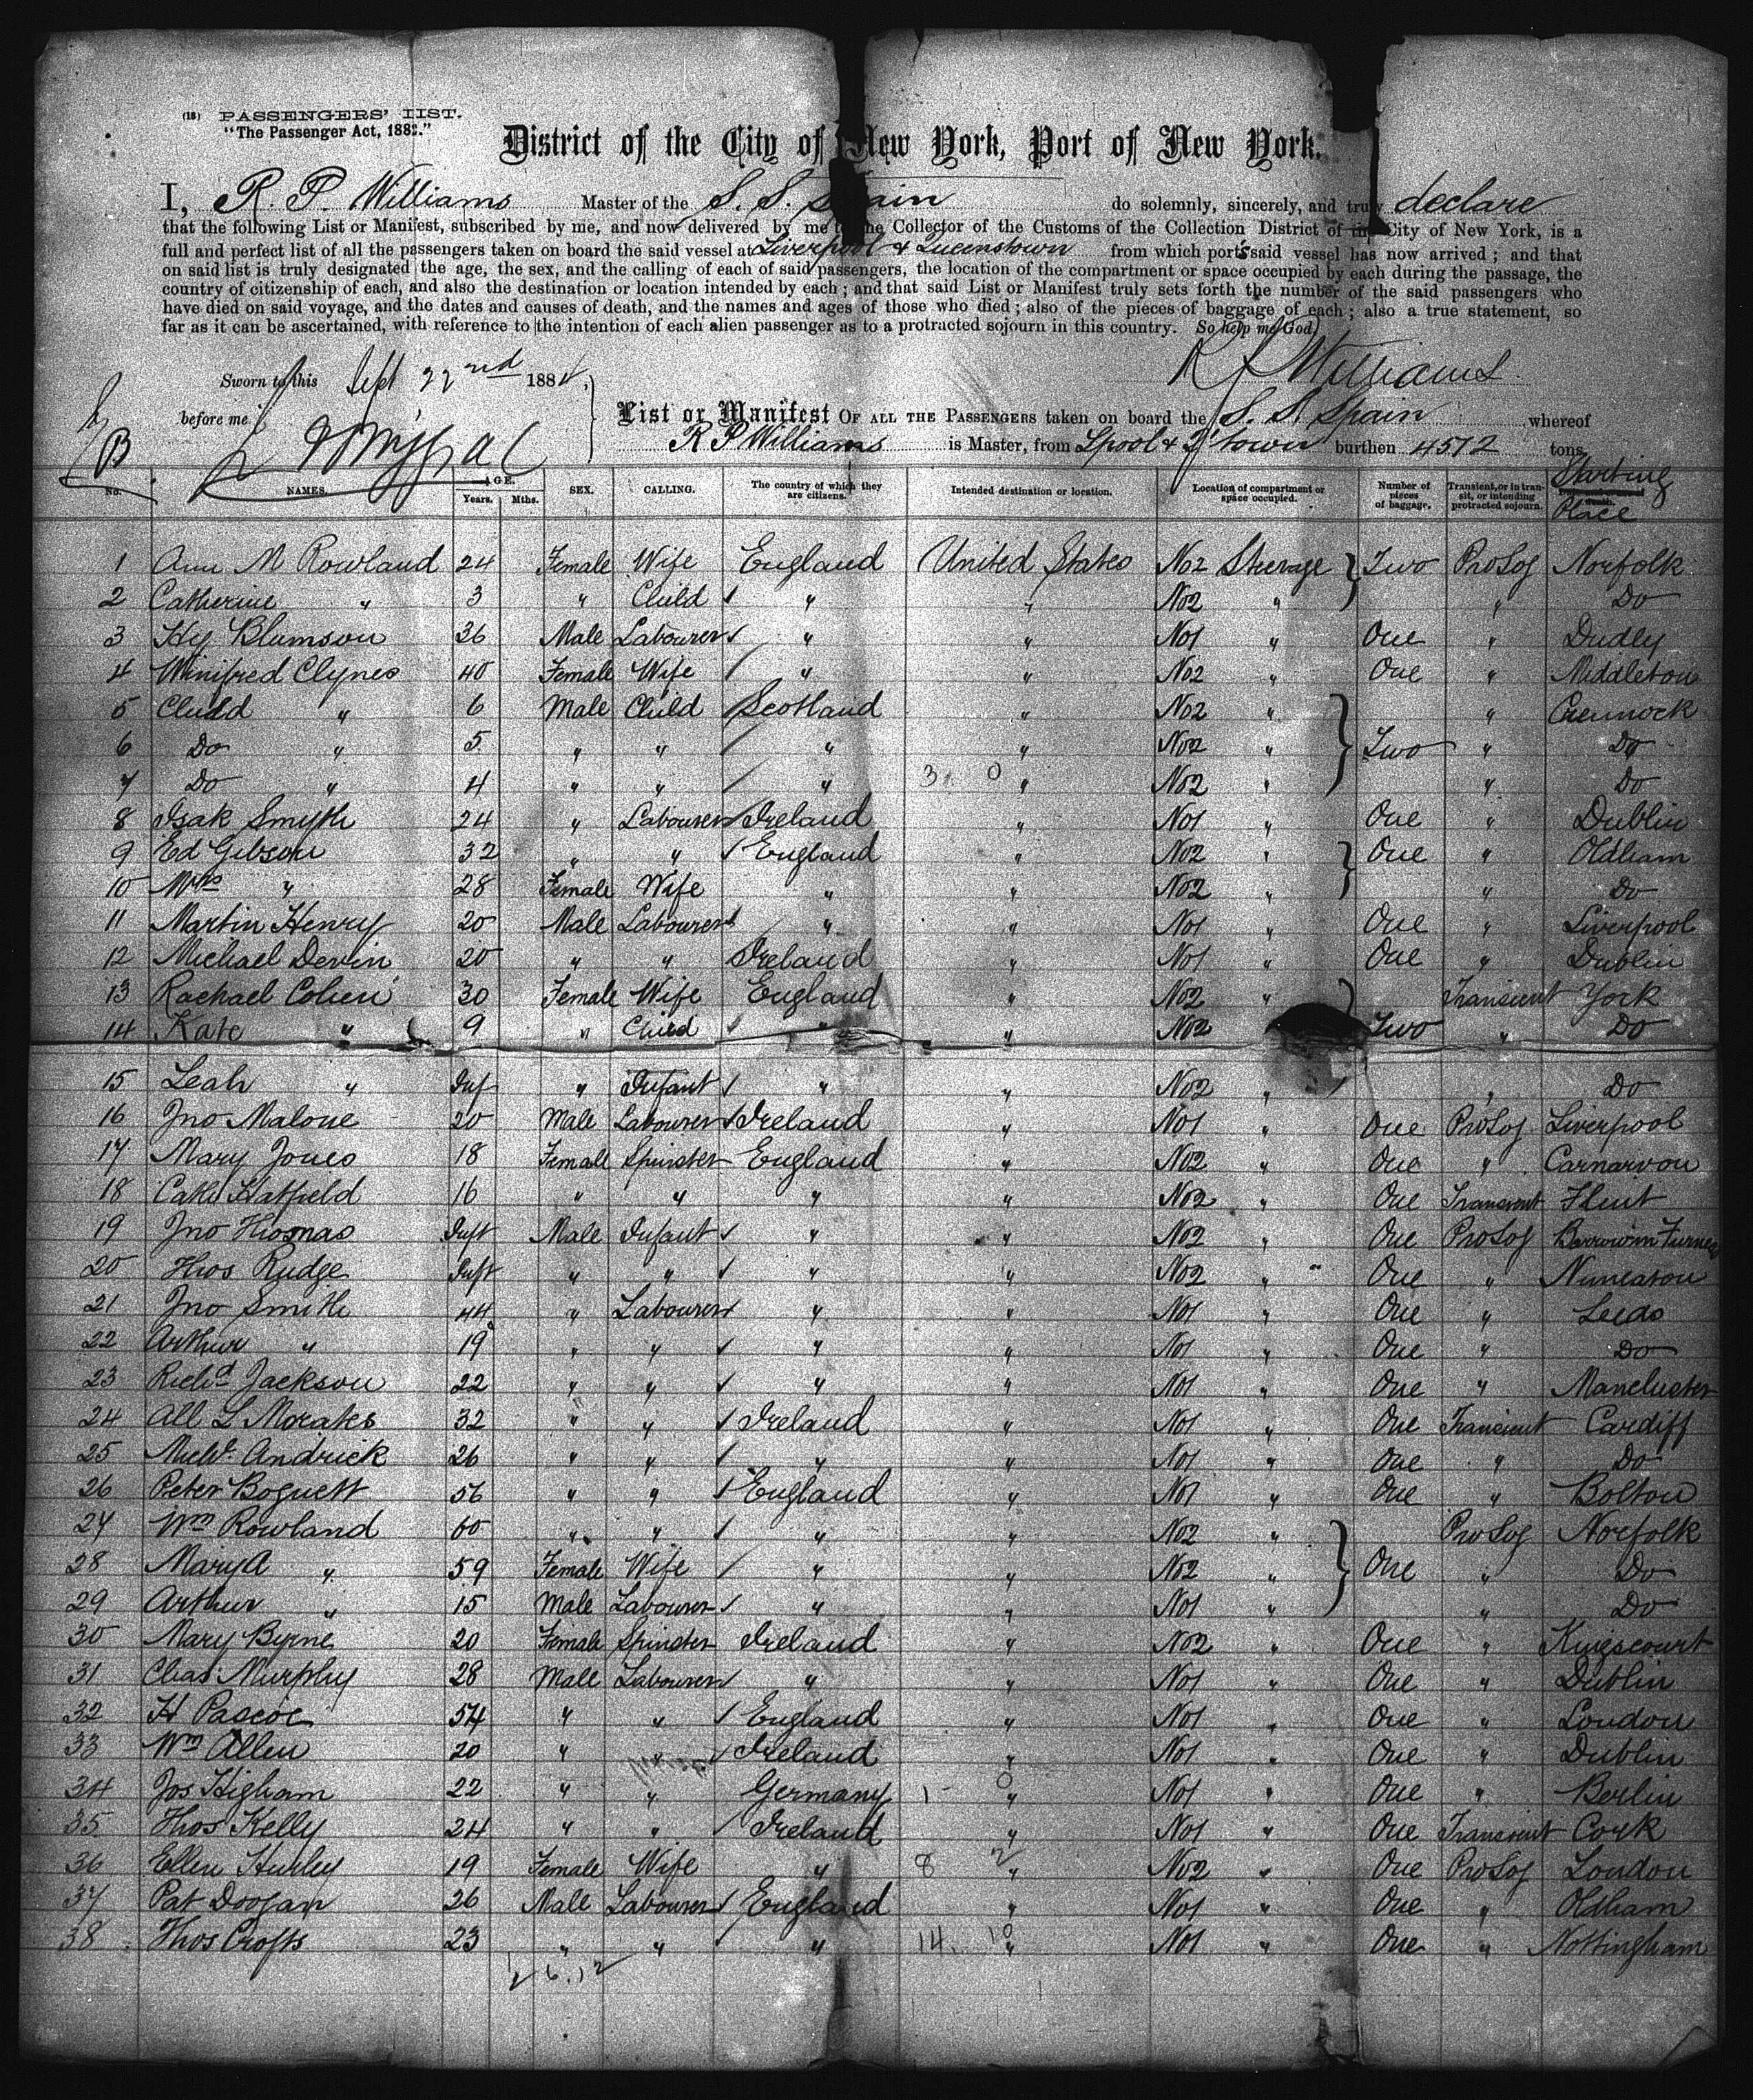 (18) PASSENGERS' LIST.
"The Passenger Act, 1882."
District of the City of New York, Port of New York.
I, R. P. Williams Master of the S. S. Spain do solemnly, sincerely, and truly declare
that the following List or Manifest, subscribed by me, and now delivered by me to the Collector of the Customs of the Collection District of the City of New York, is a
full and perfect list of all the passengers taken on board the said vessel at Liverpool & Queenstown from which port's said vessel has now arrived ; and that
on said list is truly designated the age, the sex, and the calling of each of said passengers, the location of the compartment or space occupied by each during the passage, the
country of citizenship of each, and also the destination or location intended by each ; and that said List or Manifest truly sets forth the number of the said passengers who
have died on said voyage, and the dates and causes of death, and the names and ages of those who died ; also of the pieces of baggage of each ; also a true statement, so
far as it can be ascertained, with reference to the intention of each alien passenger as to a protracted sojourn in this country. So help me God
R P Williams
Sworn to this Sept 22nd 1884,
before me
List or Manifest OF ALL THE PASSENGERS taken on board the S. S. Spain whereof
R P Williams is Master, from Lpool & Q'town burthen 4512 tons
No. NAMES. AGE. Years. Mths. SEX. CALLING. The country of which they are citizens. Intended destination or location. Location of compartment or space occupied. Number of pieces of baggage. Transient, or in transit, or intending protracted sojourn. Starting Place
1 Ann M Rowland 24 Female Wife England United States No2 Steerage Two ProSoj Norfolk
2 Catherine " 3 " Child " " No2 " " Do
3 Hy Blumson 36 Male Labourer " " No1 " One " Dudly
4 Winifred Clynes 40 Female Wife " " No2 " One " Middleton
5 Child " 6 Male Child Scotland " No2 " " Creunock
6 Do " 5 " " " " No2 " Two " Do
7 Do " 4 " " " 3 0 " No2 " " Do
8 Isak Smyth 24 " Labourer Ireland " No1 " One " Dublin
9 Ed Gibson 32 " " England " No2 " One " Oldham
10 Mrs " 28 Female Wife " " No2 " " Do
11 Martin Henry 20 Male Labourer " " No1 " One " Liverpool
12 Michael Devin 20 " " Ireland " No1 " One " Dublin
13 Rachael Cohen 30 Female Wife England " No2 " Transient York
14 Kate " 9 " Child " " No2 Two " Do
15 Leah " Inf " Infant " " No2 " " Do
16 Jno Malone 20 Male Labourer Ireland " No1 " One ProSoj Liverpool
17 Mary Jones 18 Female Spinster England " No2 " One " Carnarvon
18 Cath Hatfield 16 " " " " No2 " One Transient Flint
19 Jno Thomas Inft Male Infant " " No2 " One ProSoj Barrow in Furness
20 Thos Rudge Inft " " " " No2 " One " Nuneaton
21 Jno Smith 44 " Labourer " " No1 " One " Leeds
22 Arthur " 19 " " " " No1 " One " Do
23 Richd Jackson 22 " " " " No1 " One " Manchester
24 All L Morates 32 " " Ireland " No1 " One Transient Cardiff
25 Michl Andrick 26 " " " " No1 " One " Do
26 Peter Boguett 56 " " England " No1 " One " Bolton
27 Wm Rowland 60 " " " " No2 " ProSoj Norfolk
28 Mary A " 59 Female Wife " " No2 " One " Do
29 Arthur " 15 Male Labourer " " No1 " " Do
30 Mary Byrne 20 Female Spinster Ireland " No2 " One " Kingscourt
31 Chas Murphy 28 Male Labourer " " No1 " One " Dublin
32 H Pascoe 54 " " England " No1 " One " London
33 Wm Allen 20 " " Ireland " No1 " One " Dublin
34 Jos Higham 22 " " Germany 1 0 " No1 " One " Berlin
35 Thos Kelly 24 " " Ireland " No1 " One Transient Cork
36 Ellen Hurley 19 Female Wife " 8 2 " No2 " One ProSoj London
37 Pat Doogan 26 Male Labourer England " No1 " One " Oldham
38 Thos Crofts 23 " " " 14. 10 " No1 " One " Nottingham